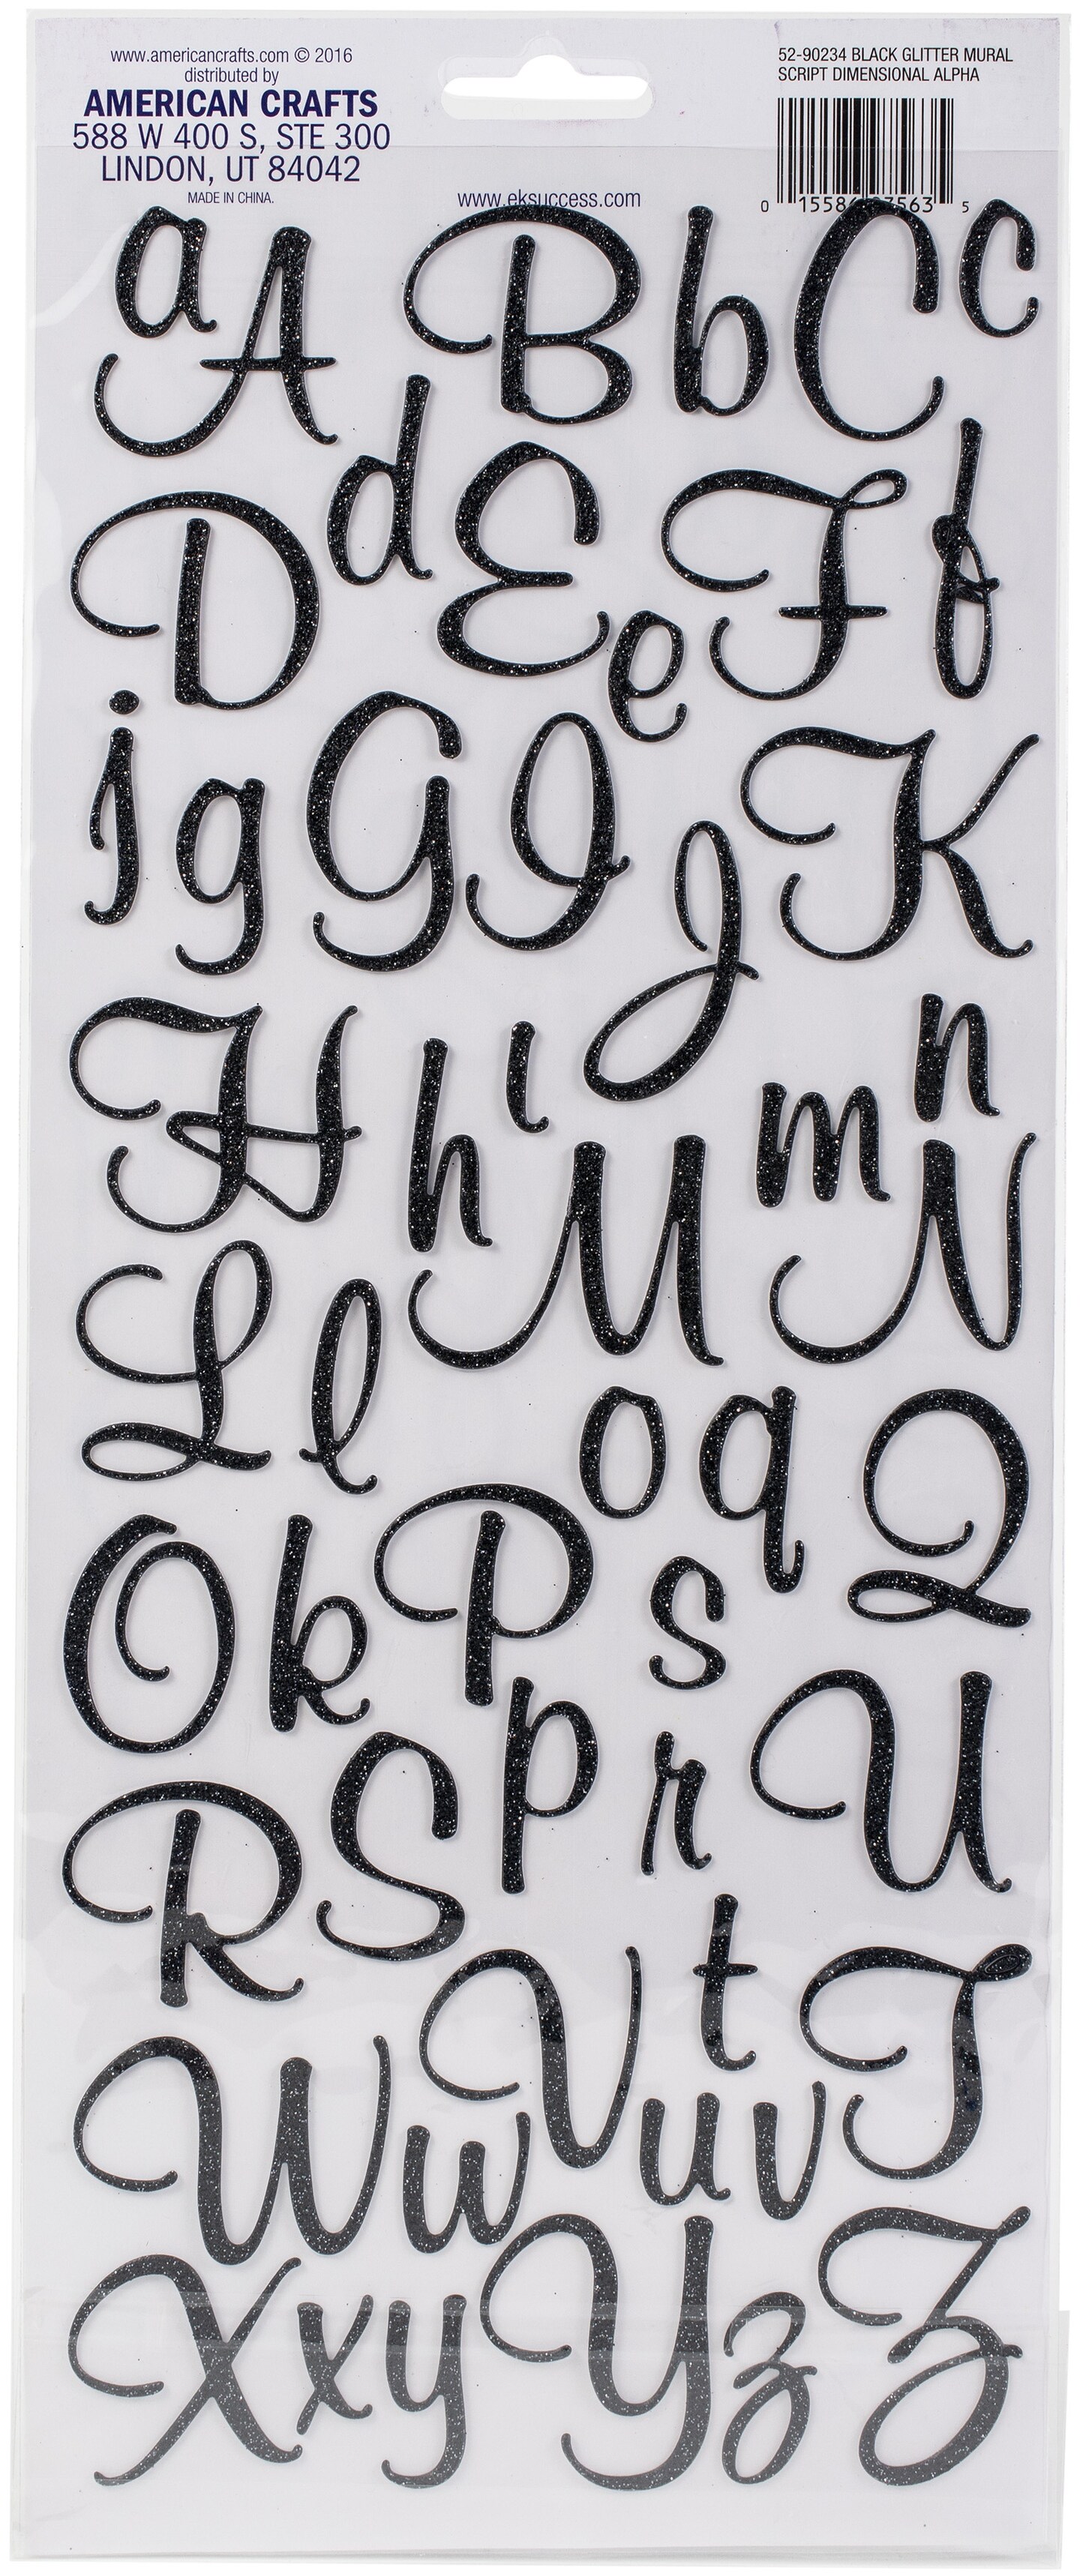 www.americancrafts.com © 2016
distributed by
AMERICAN CRAFTS
588 W 400 S, STE 300
LINDON, UT 84042
MADE IN CHINA.
www.eksuccess.com
52-90234 BLACK GLITTER MURAL
SCRIPT DIMENSIONAL ALPHA
0 5
a A B b C c
D d E e F f
j g G I J K
H h i M m n N
L l o q Q
O k P p s r U
R S V t T
W w u v
X x y Y z Z